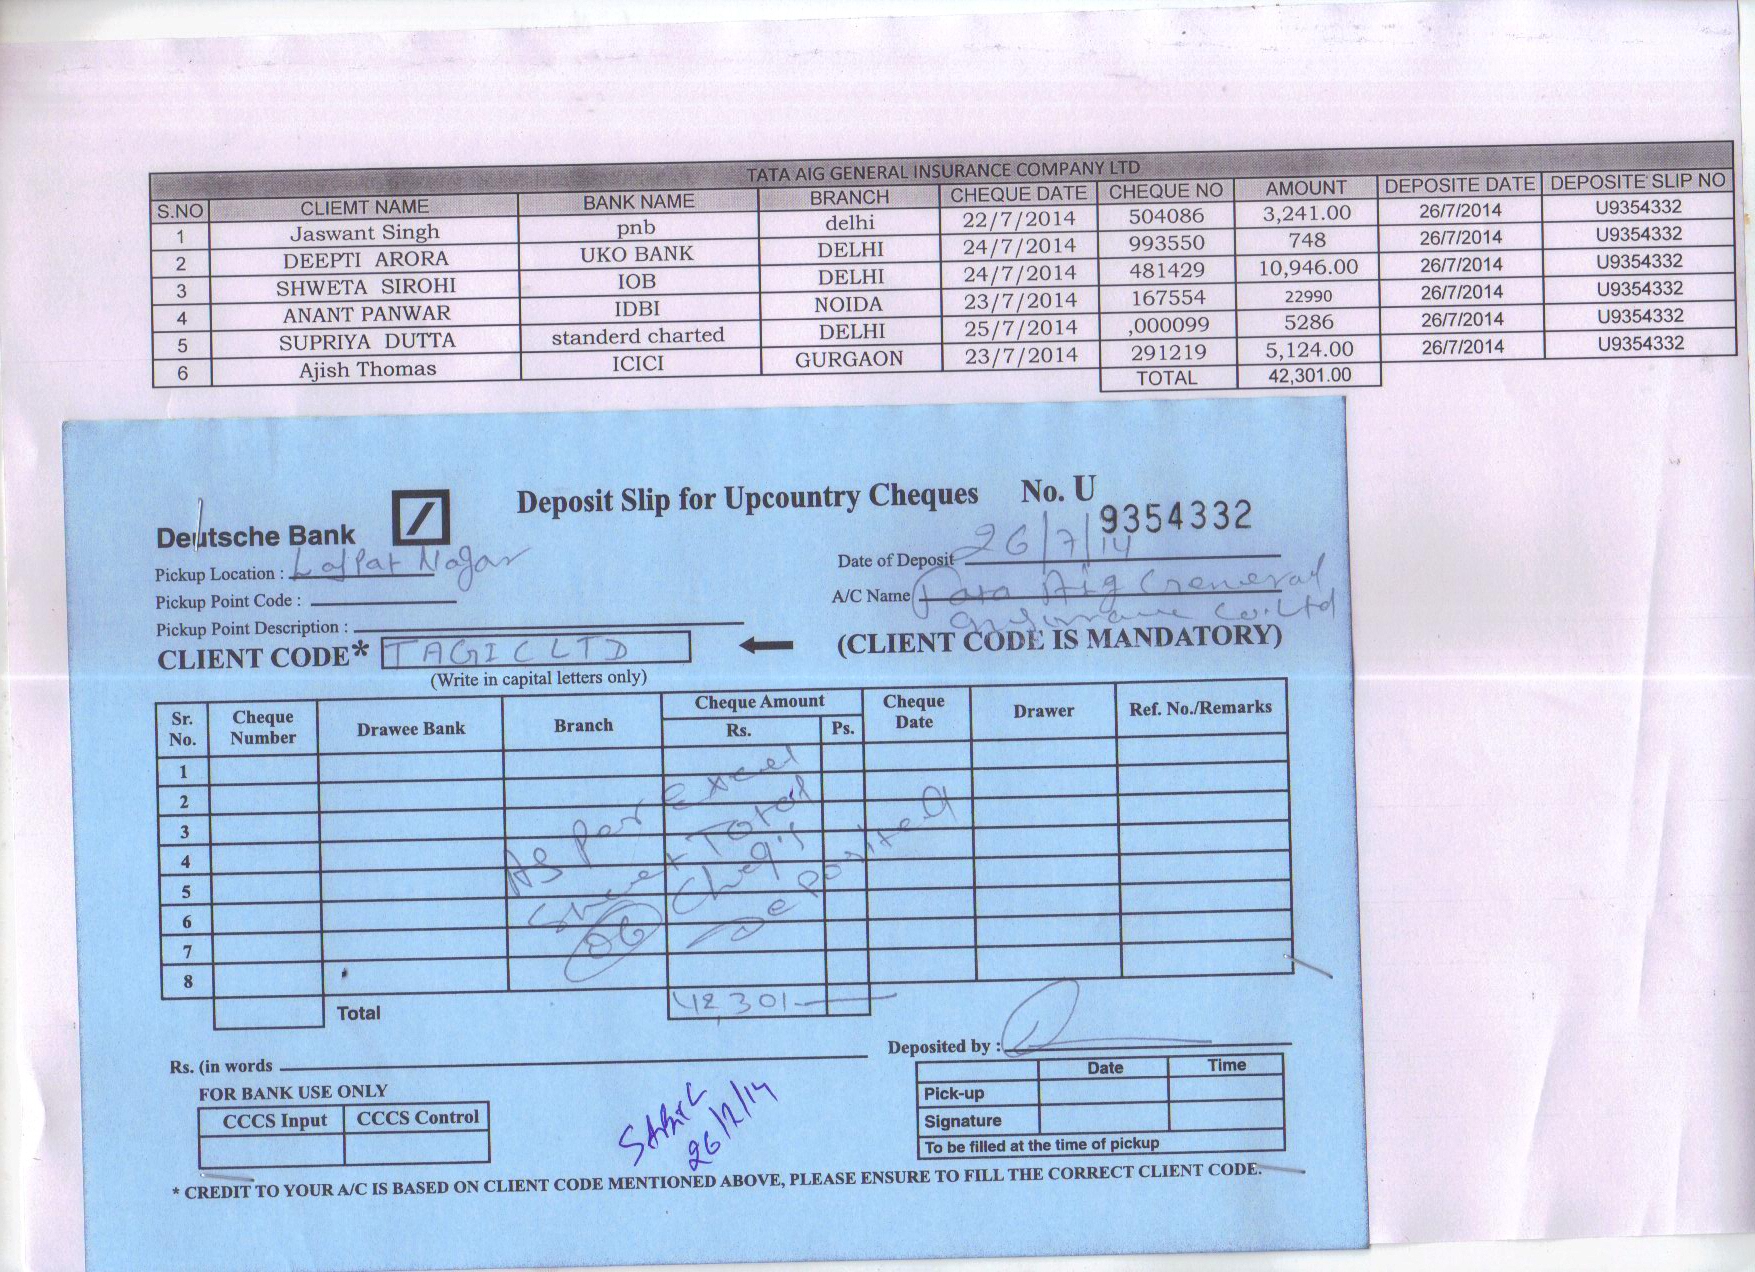 TATA AIG GENERAL INSURANCE COMPANY LTD
S.NO CLIEMT NAME BANK NAME BRANCH CHEQUE DATE CHEQUE NO AMOUNT DEPOSITE DATE DEPOSITE SLIP NO
1 Jaswant Singh pnb delhi 22/7/2014 504086 3,241.00 26/7/2014 U9354332
2 DEEPTI ARORA UKO BANK DELHI 24/7/2014 993550 748 26/7/2014 U9354332
3 SHWETA SIROHI IOB DELHI 24/7/2014 481429 10,946.00 26/7/2014 U9354332
4 ANANT PANWAR IDBI NOIDA 23/7/2014 167554 22990 26/7/2014 U9354332
5 SUPRIYA DUTTA standerd charted DELHI 25/7/2014 ,000099 5286 26/7/2014 U9354332
6 Ajish Thomas ICICI GURGAON 23/7/2014 291219 5,124.00 26/7/2014 U9354332
TOTAL 42,301.00
Deutsche Bank Deposit Slip for Upcountry Cheques No. U 9354332
Pickup Location : Lajpat Nagar Date of Deposit 26/7/14
Pickup Point Code : A/C Name Tata Aig General
Pickup Point Description : Co. Ltd
CLIENT CODE* TAGIC LTD (CLIENT CODE IS MANDATORY)
(Write in capital letters only)
Sr. No. Cheque Number Drawee Bank Branch Cheque Amount Rs. Ps. Cheque Date Drawer Ref. No./Remarks
1
2
3
4
5
6
7
8
As Per Excel
Sheet Total
06 Cheq's
Deposited
Total 42,301
Rs. (in words Deposited by :
FOR BANK USE ONLY Date Time
CCCS Input CCCS Control Pick-up
Signature
To be filled at the time of pickup
26/7/14
* CREDIT TO YOUR A/C IS BASED ON CLIENT CODE MENTIONED ABOVE, PLEASE ENSURE TO FILL THE CORRECT CLIENT CODE.